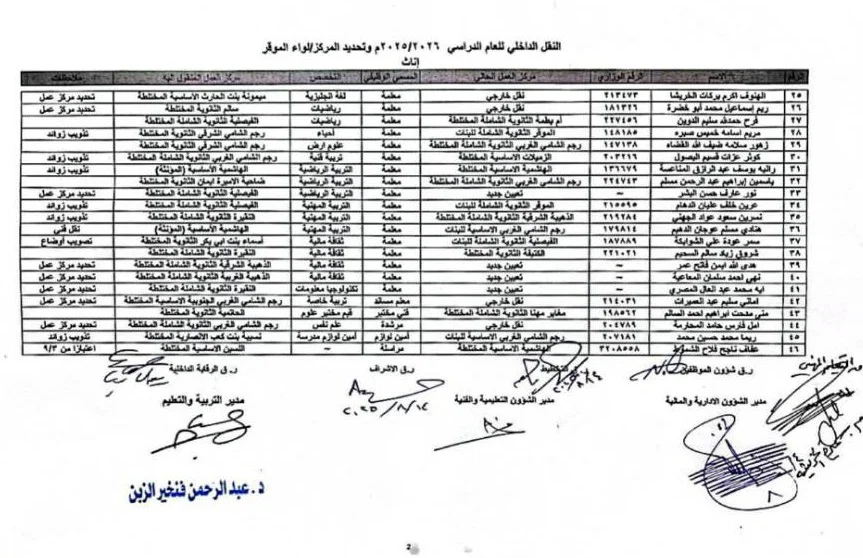 النقل الداخلي للعام الدراسي ٢٠٢٥/٢٠٢٦م وتحديد المركز/لواء الموقر
إناث
الرقم الاسم الرقم الوزاري مركز العمل الحالي المسمى الوظيفي التخصص مركز العمل المنقول اليه ملاحظات
٢٥ الهنوف اكرم بركات الخريشا ٢١٣٤٧٣ نقل خارجي معلمة لغة انجليزية ميمونة بنت الحارث الاساسية المختلطة تحديد مركز عمل
٢٦ ريم إسماعيل محمد أبو خضرة ١٨١٣٢٦ نقل خارجي معلمة رياضيات سالم الثانوية المختلطة تحديد مركز عمل
٢٧ فرح حمدالله سليم الدوين ٢٢٧٤٥٦ أم بطمة الثانوية الشاملة المختلطة معلمة رياضيات الفيصلية الثانوية المختلطة
٢٨ مريم اسامه خميس صبره ١٤٨١٨٥ الموقر الثانوية الشاملة للبنات معلمة أحياء رجم الشامي الشرقي الثانوية المختلطة تذويب زوائد
٢٩ زهور سلامه ضيف الله القضاه ١٤٧١٣٨ رجم الشامي الغربي الثانوية الشاملة المختلطة معلمة علوم ارض رجم الشامي الشرقي الثانوية المختلطة تذويب زوائد
٣٠ كوثر عزات قسيم البصول ٢٠٣٢١٦ الزميلات الاساسية المختلطة معلمة تربية فنية رجم الشامي الغربي الثانوية الشاملة المختلطة تذويب زوائد
٣١ رانيه يوسف عبد الرازق المناعسة ١٣٦٦٧٩ الهاشمية الأساسية المختلطة معلمة التربية الرياضية الهاشمية الأساسية (المؤنثة) تذويب زوائد
٣٢ ياسمين إبراهيم عبد الرحمن مسلم ٢٢٤٧٤٣ رجم الشامي الغربي الثانوية الشاملة المختلطة معلمة التربية الرياضية ضاحية الاميرة ايمان الثانوية المختلطة
٣٣ نور عارف حسن البشر ~ تعيين جديد معلمة التربية الرياضية الفيصلية الثانوية المختلطة تحديد مركز عمل
٣٤ عرين خلف عليان الدهام ٢١٥٥٩٥ الموقر الثانوية الشاملة للبنات معلمة التربية المهنية الفيصلية الثانوية المختلطة تذويب زوائد
٣٥ نسرين سعود عواد الجهني ٢١٩٢٨٤ الذهيبة الشرقية الثانوية الشاملة المختلطة معلمة التربية المهنية النقيرة الثانوية الشاملة المختلطة تذويب زوائد
٣٦ هنادي مسلم عوجان الدهيم ١٧٩٨١٤ رجم الشامي الغربي الاساسية للبنات معلمة التربية المهنية الهاشمية الأساسية (المؤنثة) نقل فني
٣٧ سمر عودة علي الشوابكة ١٨٧٨٨٩ الفيصلية الثانوية الشاملة للبنات معلمة ثقافة مالية أسماء بنت ابي بكر الثانوية المختلطة تصويب أوضاع
٣٨ شروق زياد سالم السحيم ٢٢١٠٢١ الكتيفة الثانوية المختلطة معلمة ثقافة مالية النقيرة الثانوية الشاملة المختلطة
٣٩ هدى الله ايمن فاتح عمر ~ تعيين جديد معلمة ثقافة مالية الذهيبة الشرقية الثانوية الشاملة المختلطة تحديد مركز عمل
٤٠ نهى احمد سلمان المعاعية ~ تعيين جديد معلمة ثقافة مالية الذهيبة الغربية الثانوية المختلطة تحديد مركز عمل
٤١ ايه محمد عبد العال المصري ~ تعيين جديد معلمة تكنولوجيا معلومات النقيرة الثانوية الشاملة المختلطة تحديد مركز عمل
٤٢ اماني سليم عيد العميرات ٢١٤٠٣١ نقل خارجي معلم مساند تربية خاصة رجم الشامي الغربي الجنوبية الاساسية المختلطة تحديد مركز عمل
٤٣ منى مدحت ابراهيم احمد السالم ١٩٨٥٦٢ مغاير مهنا الثانوية الشاملة المختلطة فني مختبر قيم مختبر علوم الحاتمية الثانوية المختلطة
٤٤ امل فارس حامد المحارمة ٢٠٤٧٨٩ نقل خارجي مرشدة علم نفس رجم الشامي الغربي الثانوية الشاملة المختلطة تحديد مركز عمل
٤٥ ريما محمد حسين محمد ٢٠٧١٨١ رجم الشامي الغربي الاساسية للبنات أمين لوازم أمين لوازم مدرسة نسيبة بنت كعب الانصارية المختلطة تذويب زوائد
٤٦ عفاف ناجح فلاح الشموط ٣٢٠٨٥٥٨ الهاشمية الأساسية المختلطة مراسلة ~ اللسين الاساسية المختلطة اعتبارًا من ٩/٣
ر.ق شؤون الموظفين ر.ق التخطيط ر.ق الاشراف ر.ق الرقابة الداخلية
مدير الشؤون الادارية والمالية مدير الشؤون التعليمية والفنية مدير التربية والتعليم
د. عبد الرحمن فنخير الزبن
2